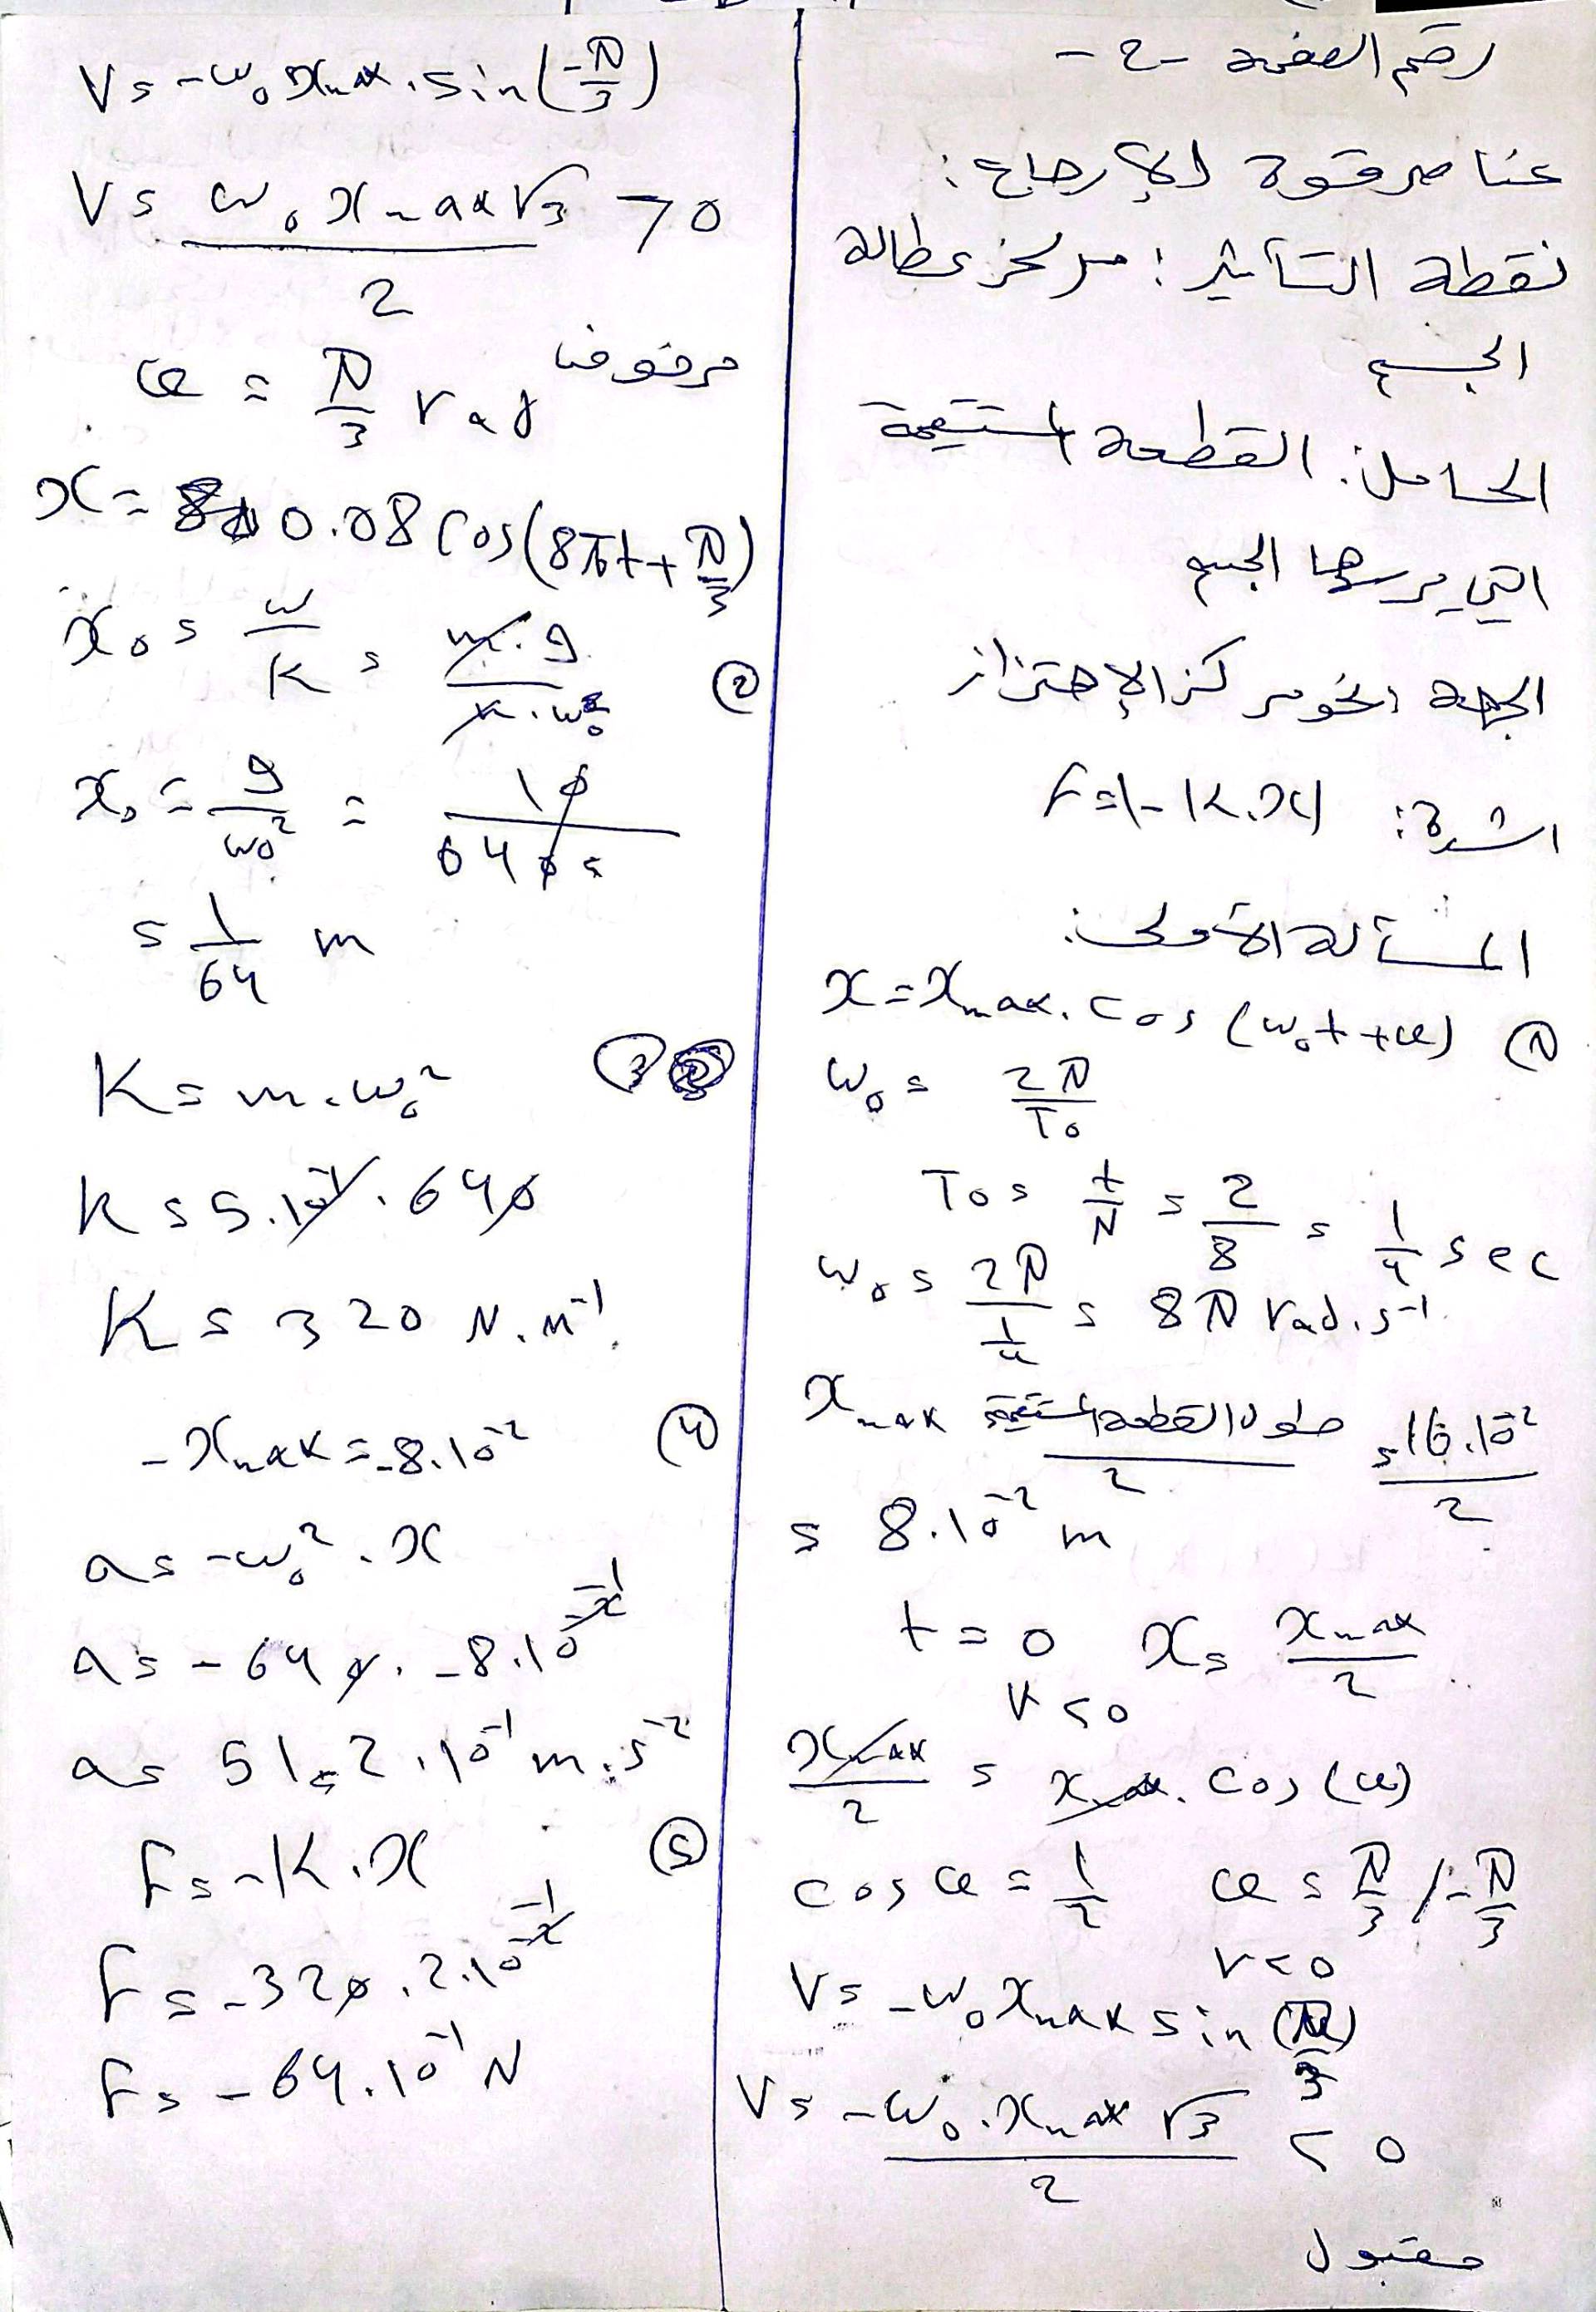 رقم الصفحة -2-
عناصر قوة الإرجاع:
نقطة التأثير: مركز عطالة
الجسم
الحامل: القطعة المستقيمة
التي يرسمها الجسم
الجهة: نحو مركز الإهتزاز
الشدة: F=|-K.x|
المسألة الأولى:
① x=xmax.cos(ω₀t+φ)
ω₀ = 2π/T₀
T₀ = t/N = 2/8 = 1/4 sec
ω₀ = 2π/(1/4) = 8π rad.s⁻¹
xmax = طول القطعة المستقيمة/2 = 16.10⁻²/2
= 8.10⁻² m
t=0 x = xmax/2
v<0
xmax/2 = xmax.cos(φ)
cosφ = 1/2 φ = π/3 / -π/3
v<0
V = -ω₀xmax sin(π/3)
V = -ω₀.xmax√3/2 < 0
مقبول
V = -ω₀xmax.sin(-π/3)
V = ω₀xmax√3/2 >0
مرفوض
φ = π/3 rad
x = 0.08 cos(8πt+π/3)
② x₀ = w/K = m.g/m.ω₀²
x₀ = g/ω₀² = 10/640 =
= 1/64 m
③ K = m.ω₀²
K = 5.10⁻¹.640
K = 320 N.m⁻¹
④ -xmax = -8.10⁻²
a = -ω₀².x
a = -640.-8.10⁻²
a = 51,2.10⁻¹ m.s⁻²
⑤ F = -K.x
F = -320.2.10⁻²
F = -64.10⁻¹ N